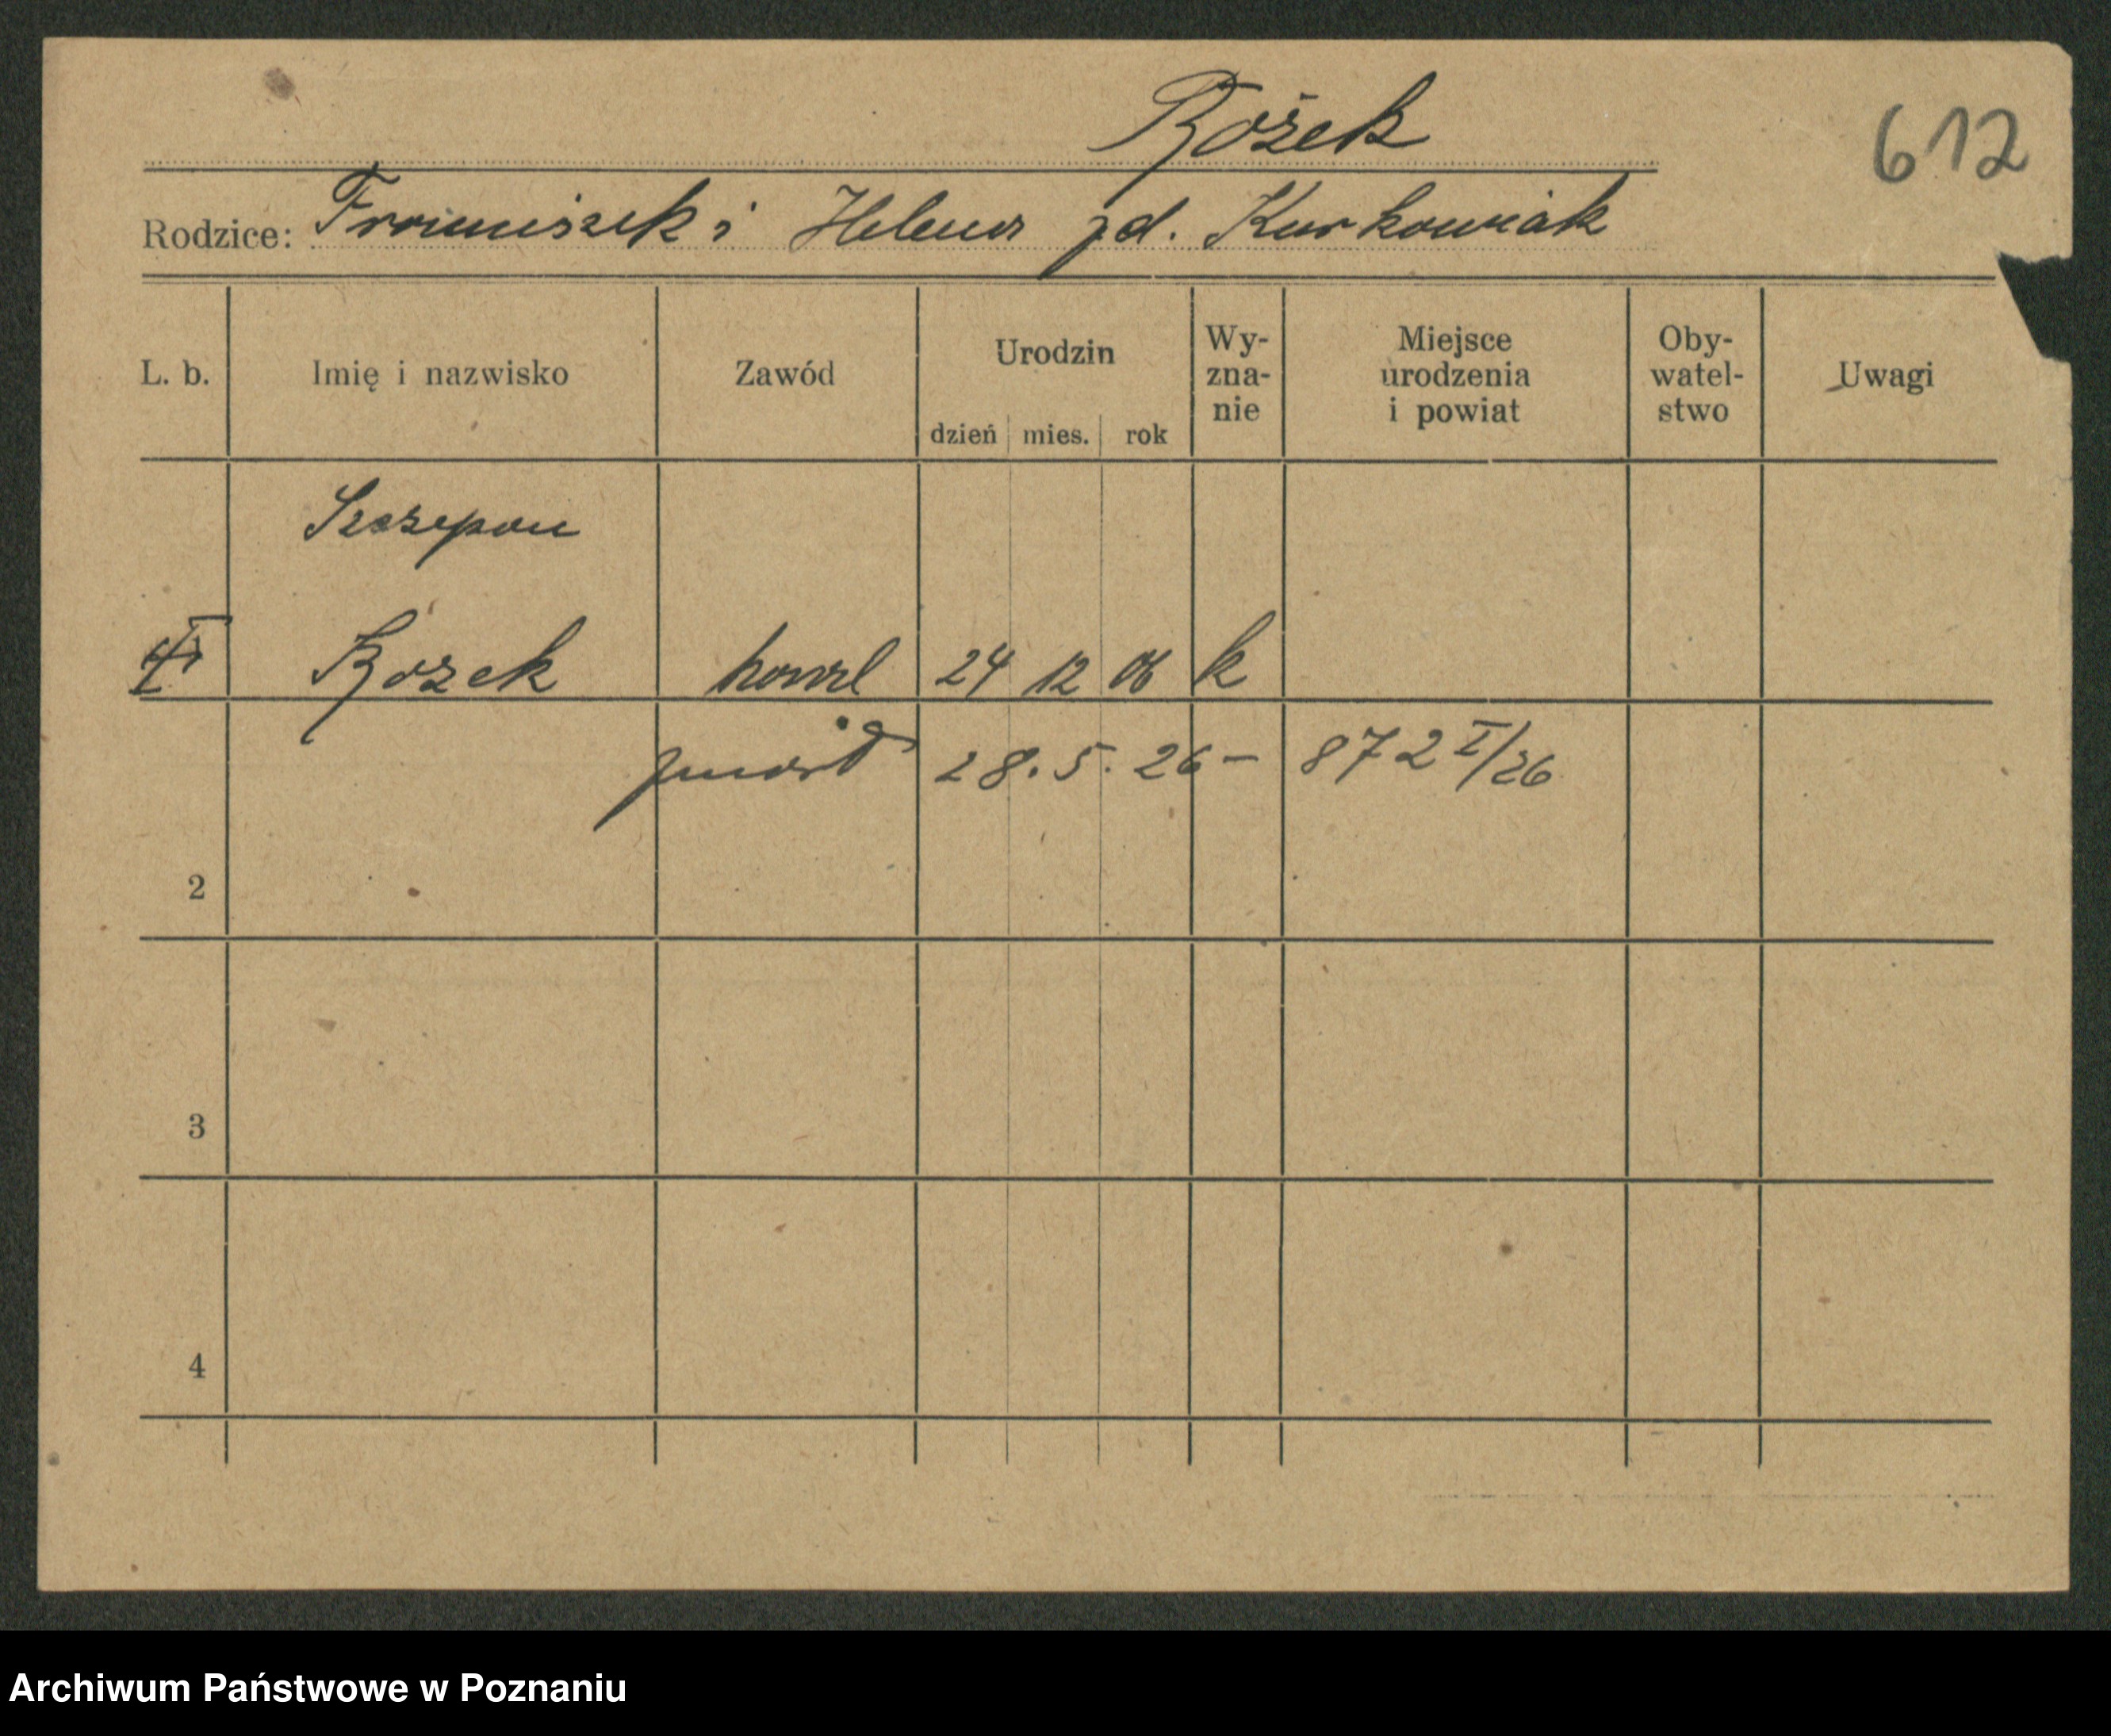 Rożek
612
Rodzice: Franciszek i Helena zd. Kurkowiak
L. b. Imię i nazwisko Zawód Urodzin dzień mies. rok Wy-zna-nie Miejsce urodzenia i powiat Oby-watel-stwo Uwagi
Szczepan
Rożek kowal 24 12 06 k
zmarł 28. 5. 26 - 872 I/26
2
3
4
Archiwum Państwowe w Poznaniu